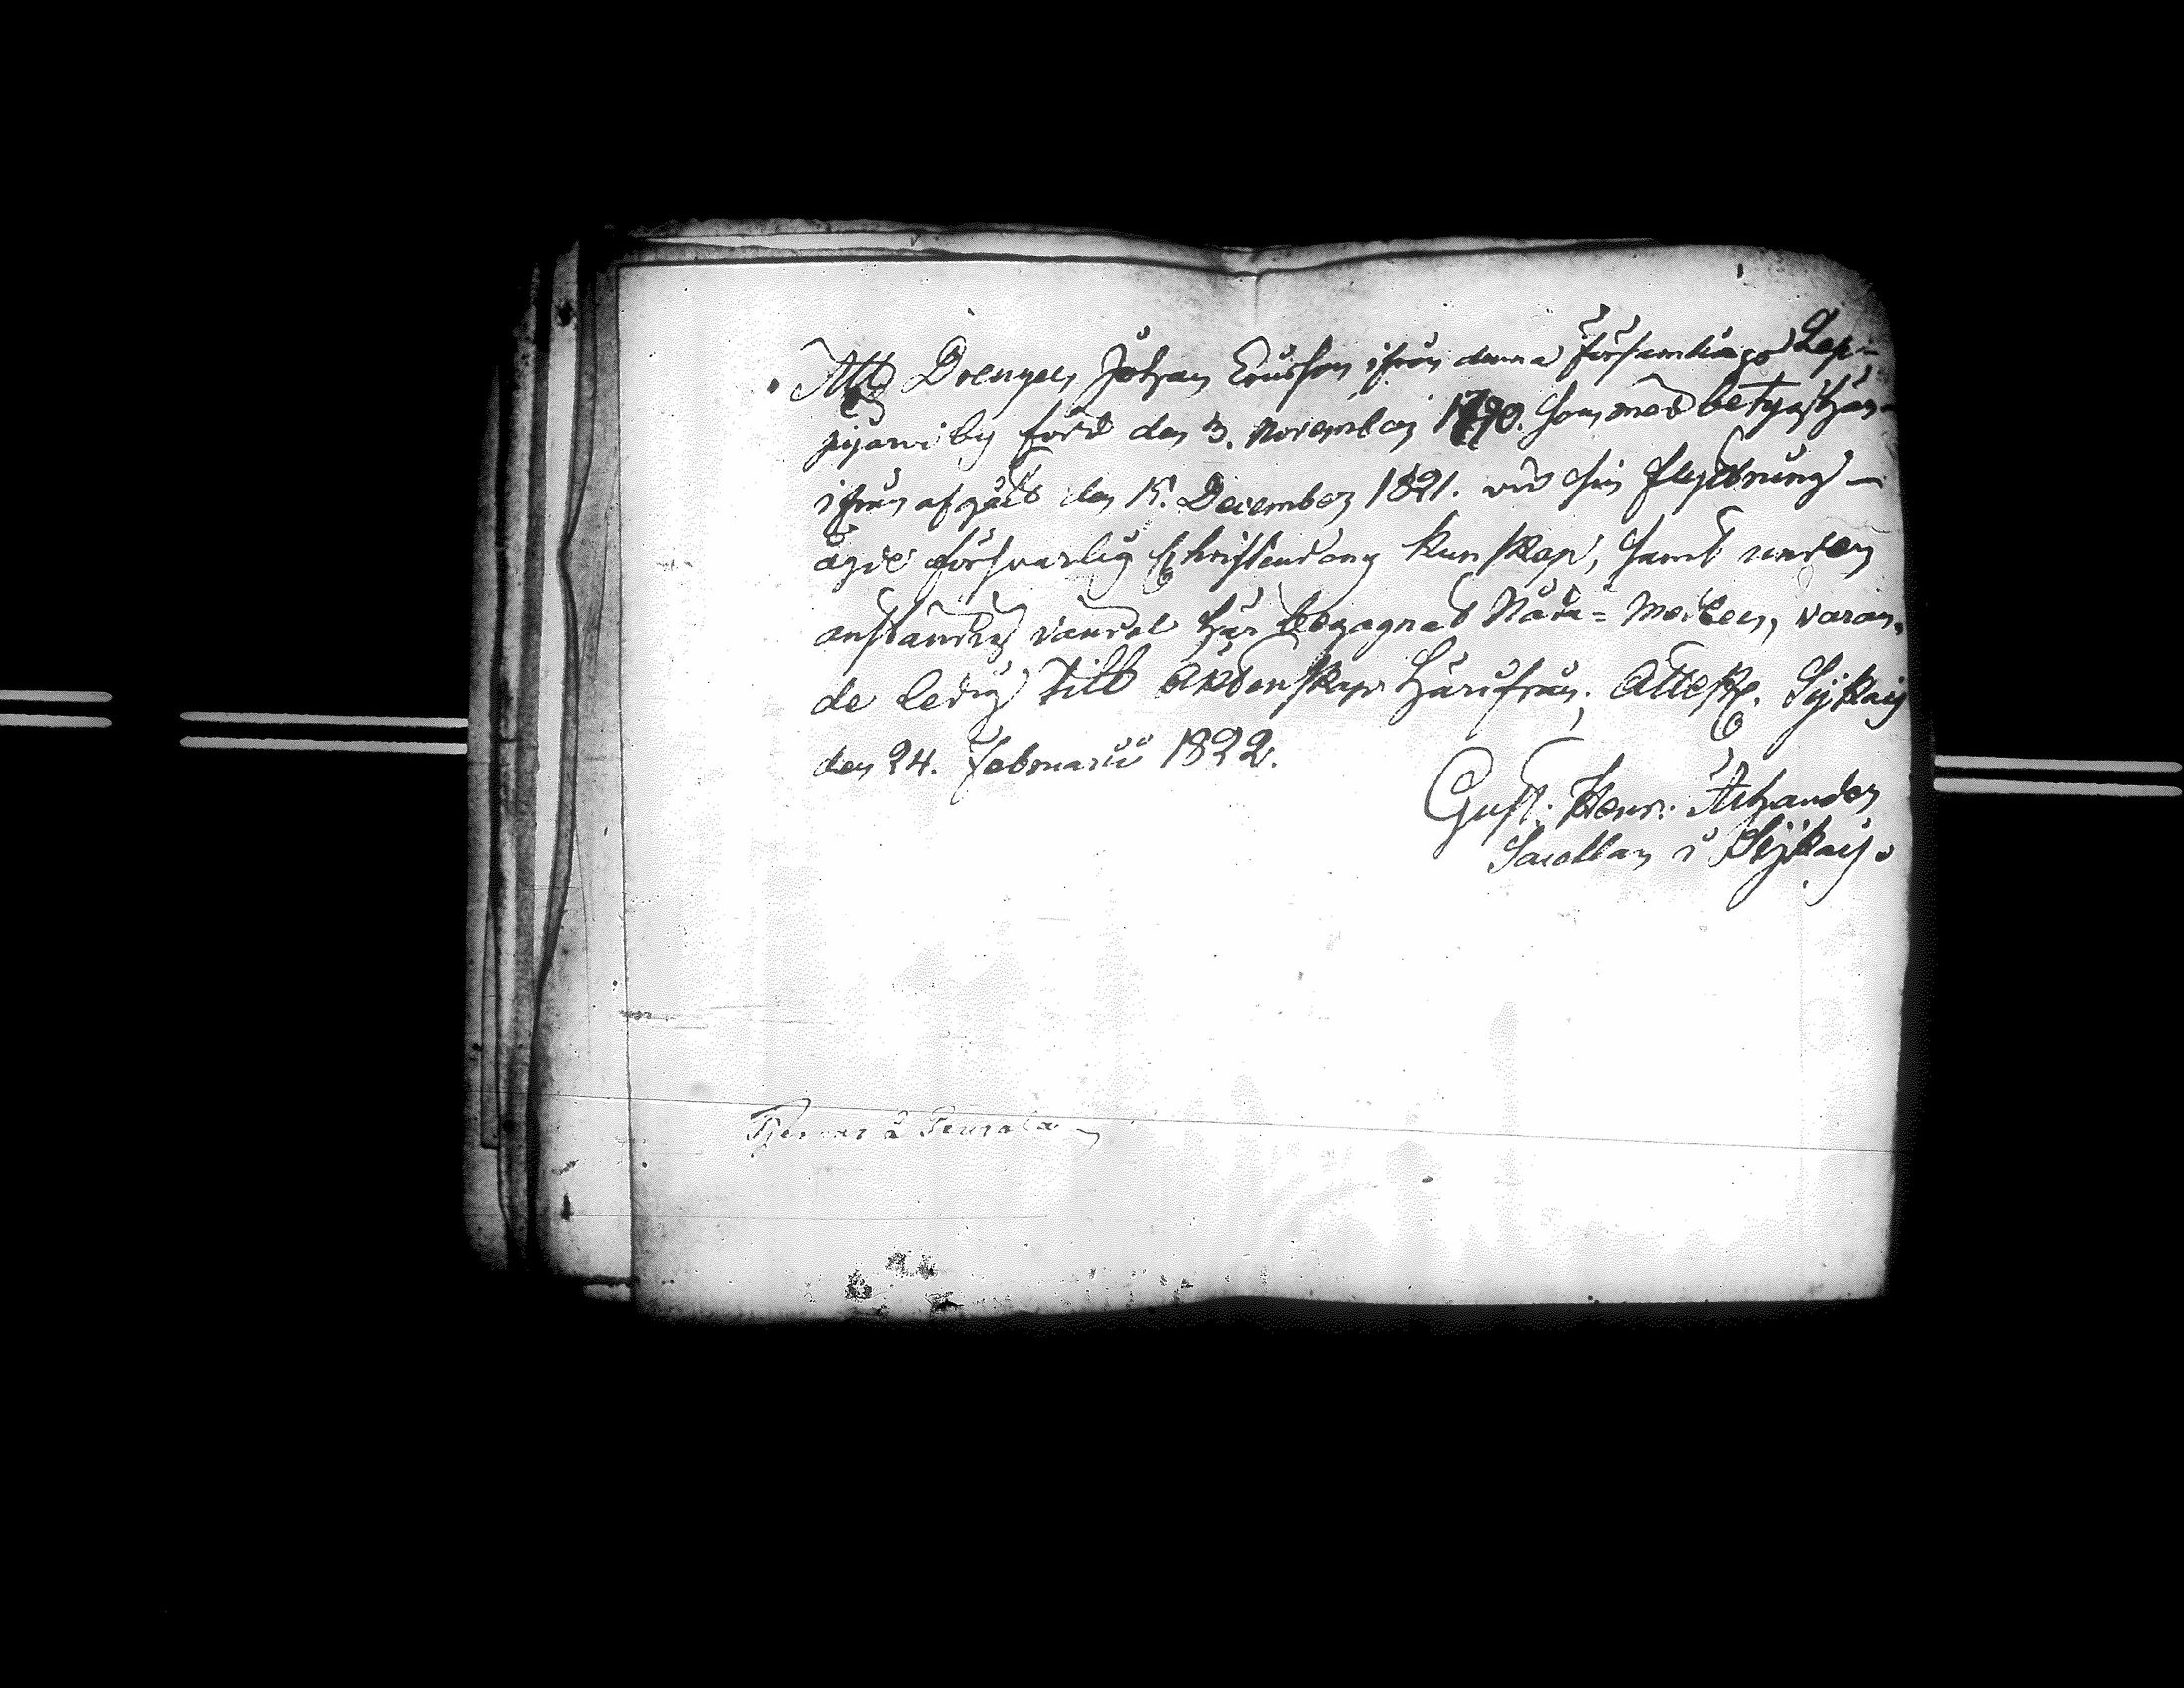 Att Drengen Johan Ericsson ifrån denna Församlings Lap-
pijärvi by född den 3. November 1790. som med betyg här
ifrån afgått den 15. December 1821. vid sin flyttning
ägde försvarlig Christendoms kunskap, samt under
anständig vandel har begagnat Nåda-Medlen, varan-
de ledig till Äktenskap härifrån; Attest. Sijkais
den 24. Februarii 1822.
Gust. Henr. Achander
Sacellan i Sijkais.